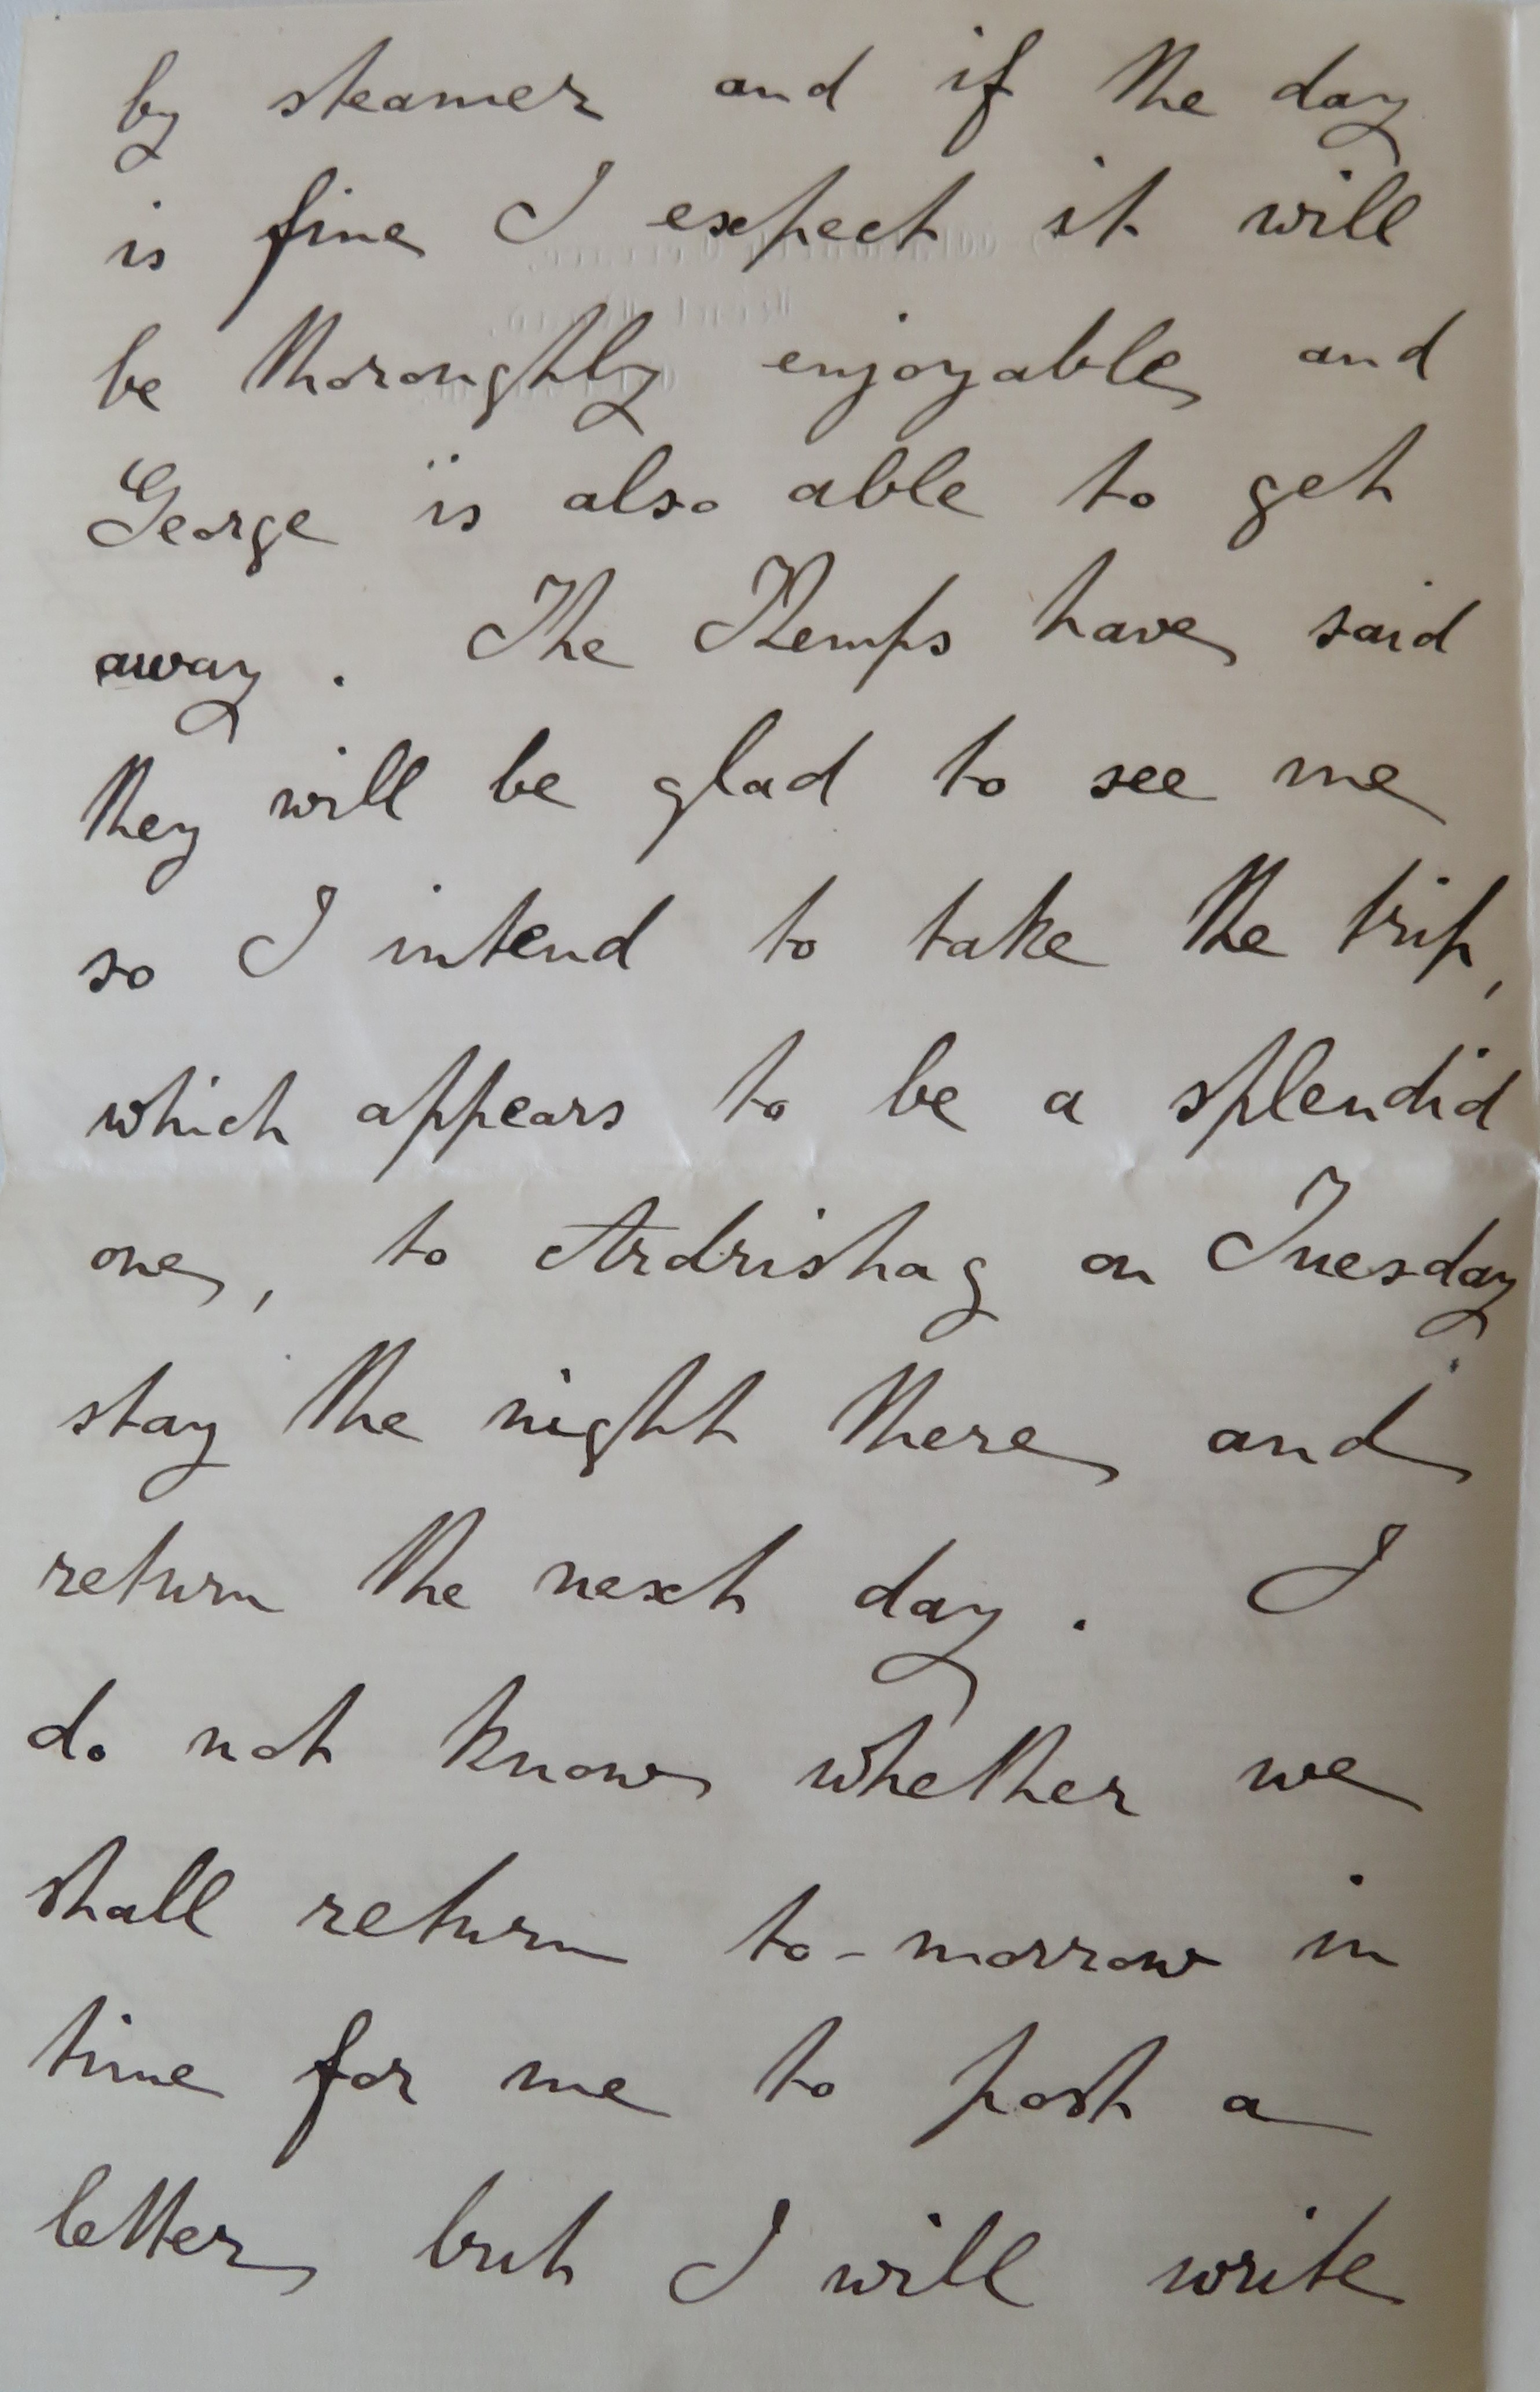 by steamer and if the day
is fine I expect it will
be thoroughly enjoyable and
George is also able to get
away. The Kemps have said
they will be glad to see me
so I intend to take the trip,
which appears to be a splendid
one, to Ardrishag on Tuesday
stay the night there and
return the next day. I
do not know whether we
shall return to-morrow in
time for me to post a
letter but I will write